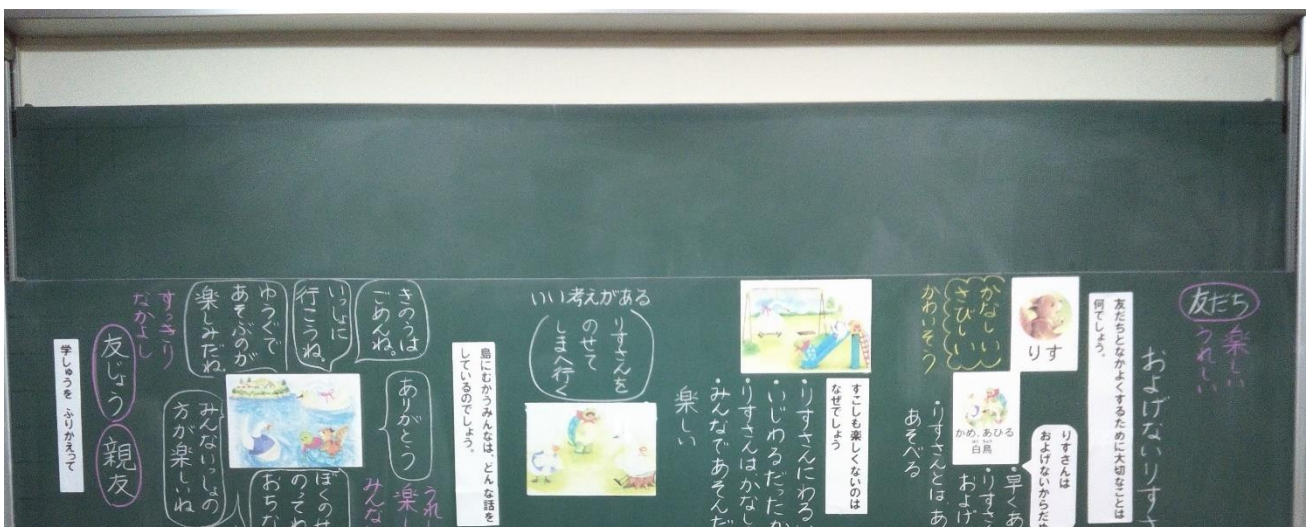 友だち
楽しい
うれしい
およげないりす
友だちとなかよくするために大切なことは
何でしょう。
りす
かなしい
さびしい
かわいそう
りすさんは
およげないからだめ
かめ、あひる
白鳥
・早くあ
・りすさ
およげ
・りすさんとはあ
あそべる
すこしも楽しくないのは
なぜでしょう
・りすさんにわる
・いじわるだったか
・りすさんはかなし
・みんなであそんだ
楽しい
いい考えがある
りすさんを
のせて
しまへ行く
島にむかうみんなは、どんな話を
しているのでしょう。
きのうは
ごめんね。
いっしょに
行こうね。
ゆうぐで
あそぶのが
楽しみだね。
ありがとう
うれ
楽し
みんな
ぼくのせ
のってね
おちな
みんないっしょの
方が楽しいね
すっきり
なかよし
友じょう
親友
学しゅうを ふりかえって